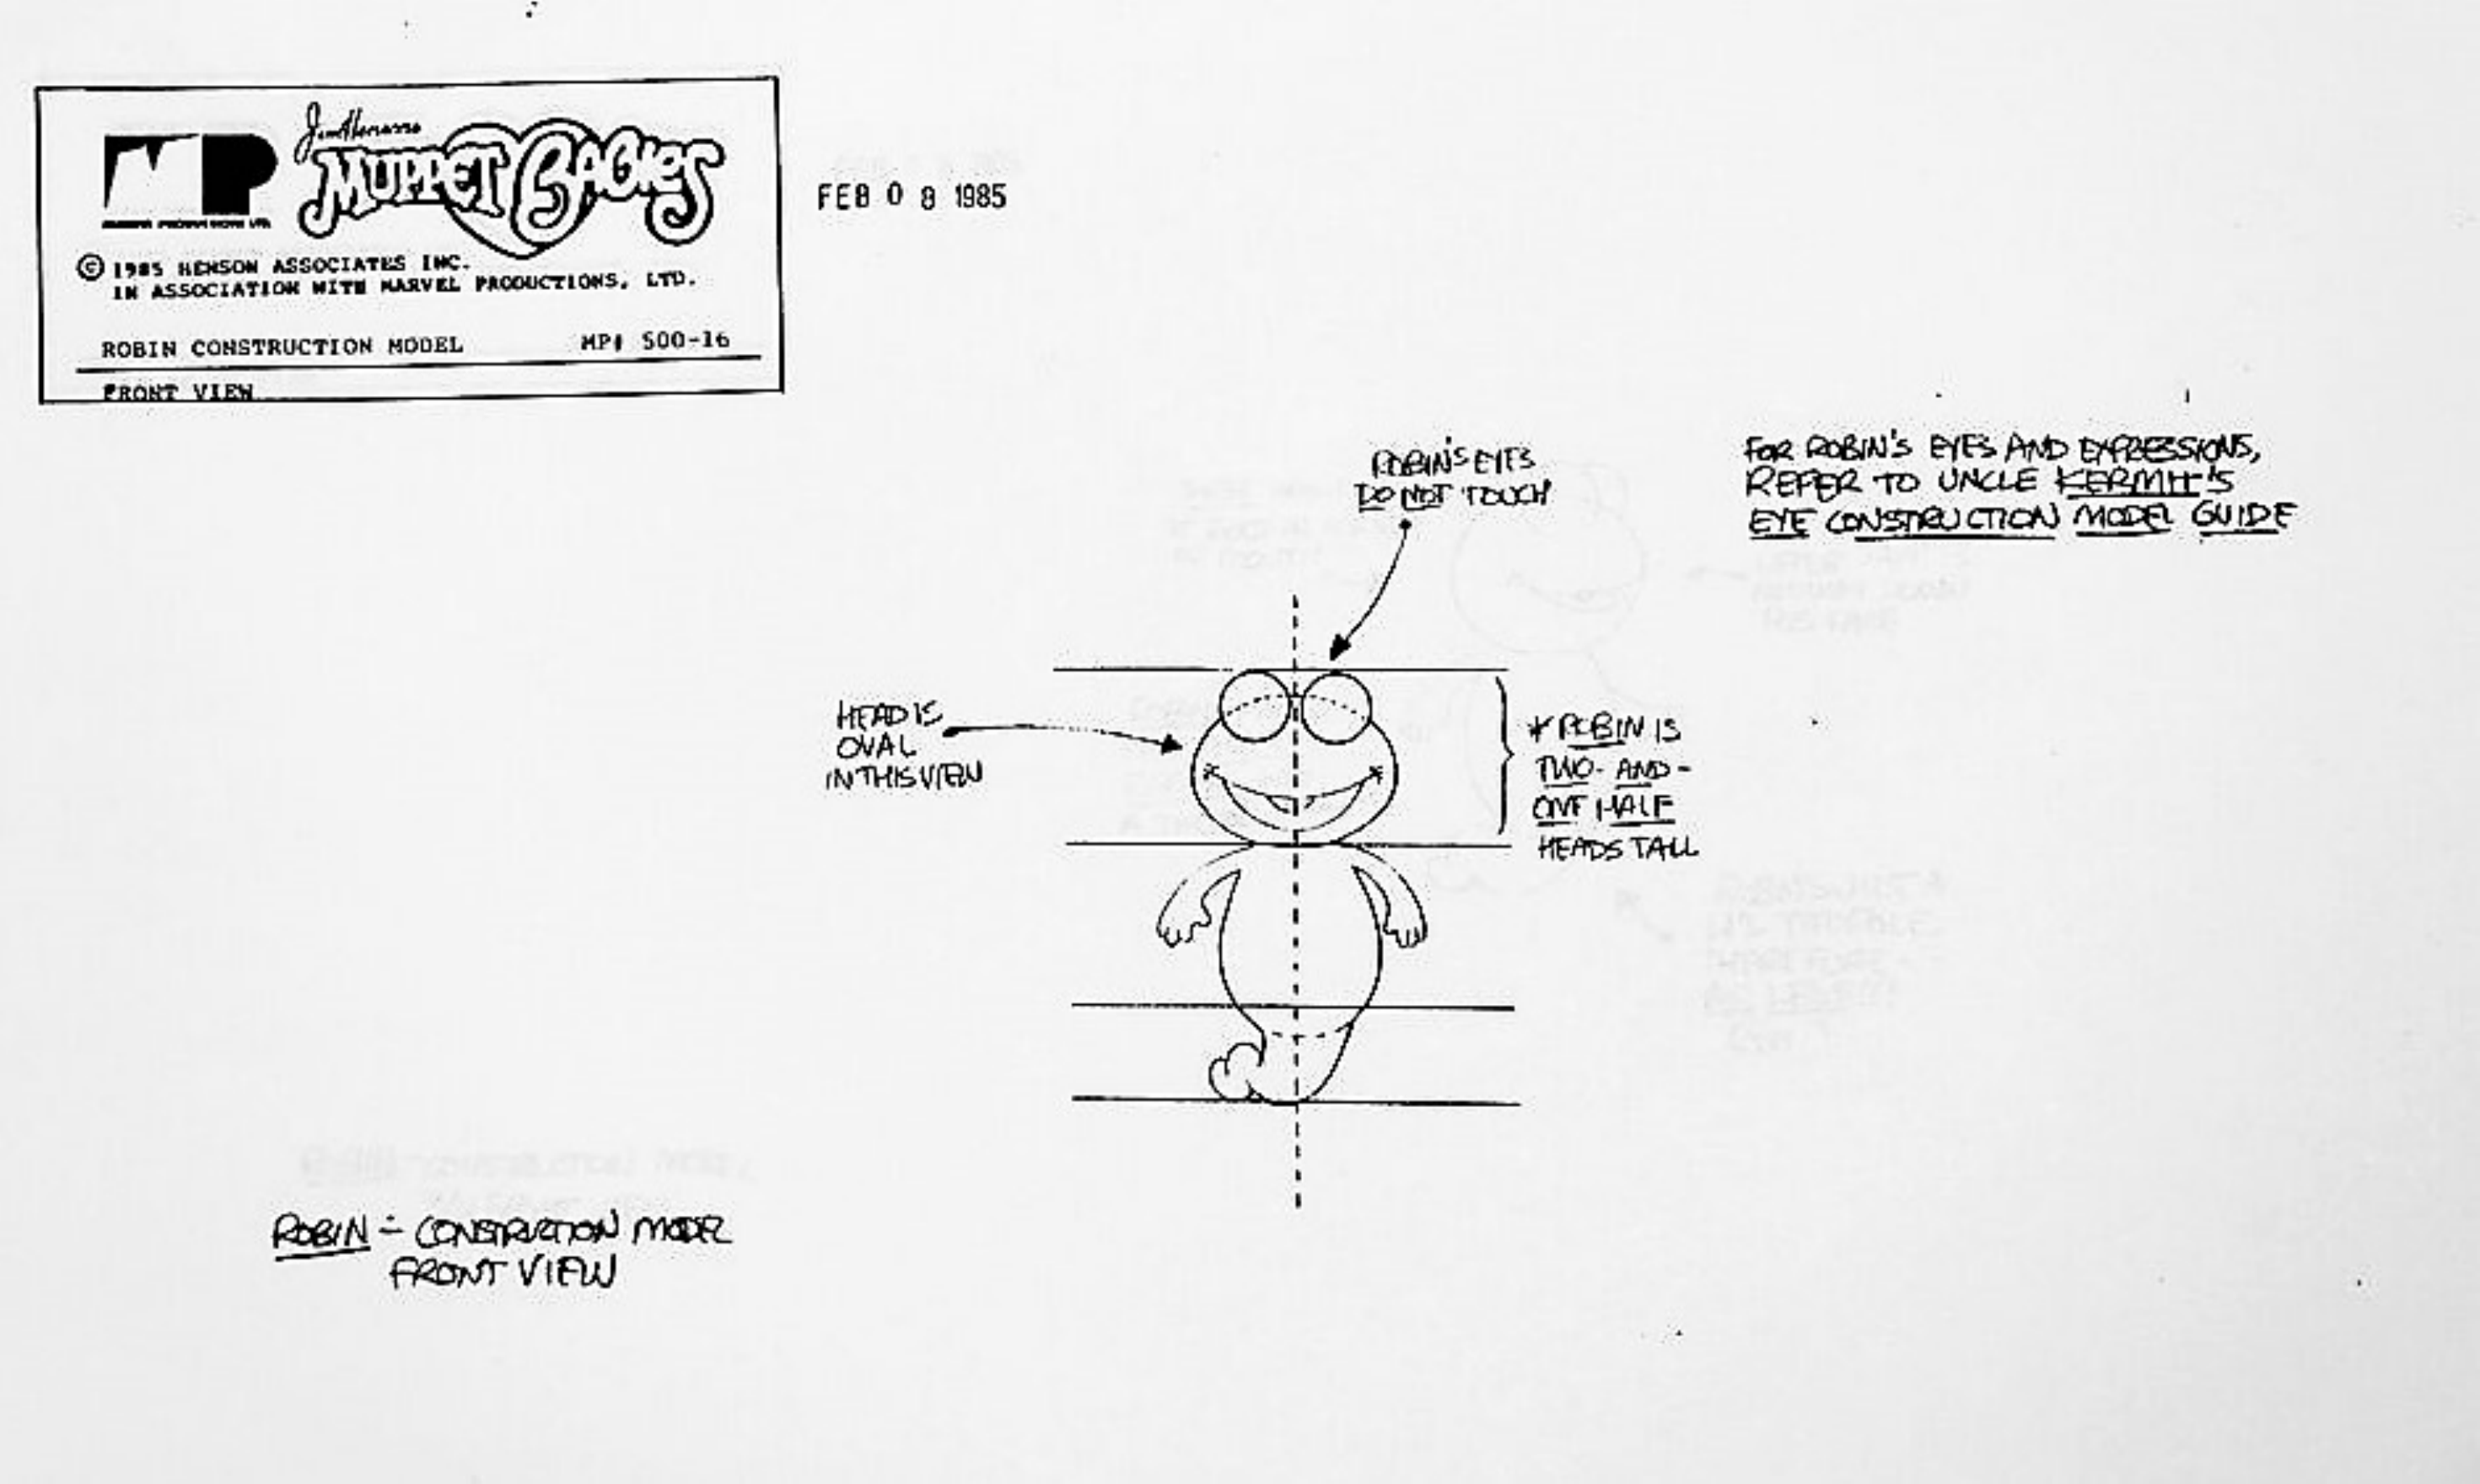 Jim Henson's
MUPPET BABIES
MP
FEB 08 1985
© 1985 HENSON ASSOCIATES INC.
IN ASSOCIATION WITH MARVEL PRODUCTIONS, LTD.
ROBIN CONSTRUCTION MODEL MP# 500-16
FRONT VIEW
ROBIN'S EYES
DO NOT TOUCH
FOR ROBIN'S EYES AND EXPRESSIONS,
REFER TO UNCLE KERMIT'S
EYE CONSTRUCTION MODEL GUIDE
HEAD IS
OVAL
IN THIS VIEW
* ROBIN IS
TWO-AND-
ONE HALF
HEADS TALL
ROBIN - CONSTRUCTION MODEL
FRONT VIEW